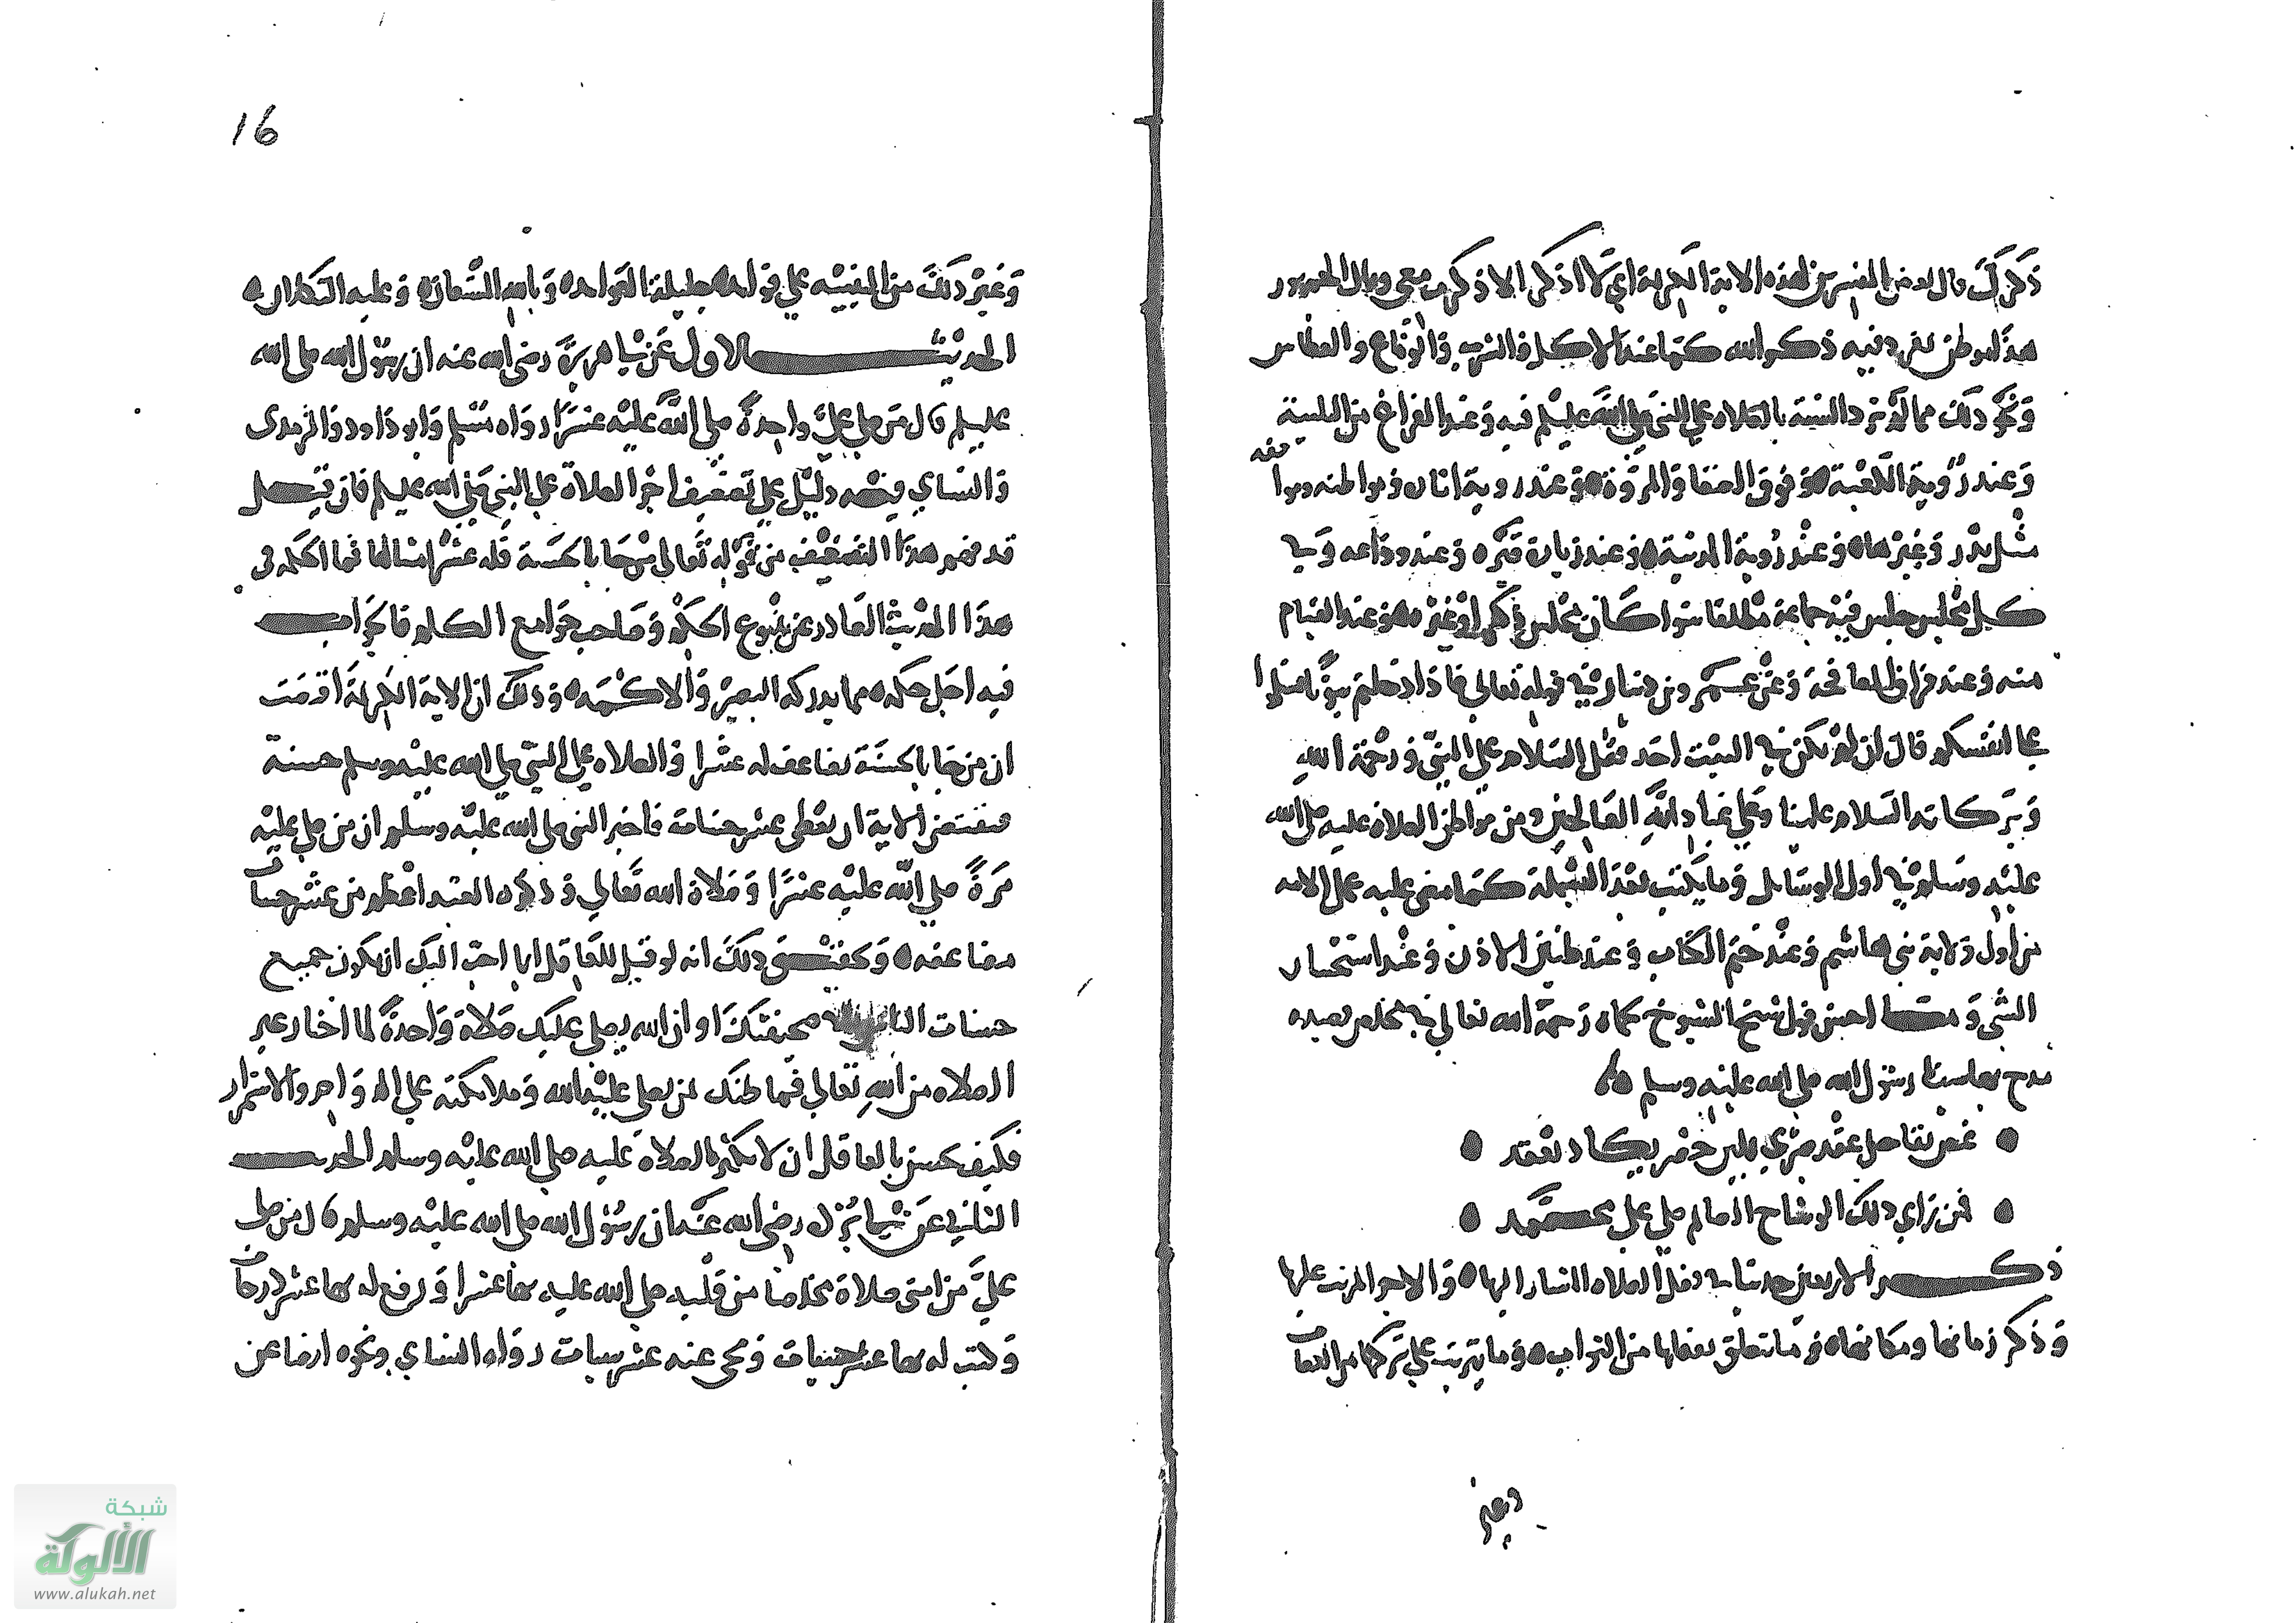 ذكرك قال بعض المفسرين لهذه الاية الكريمة اي كلما اذكر الا ذكرت معي وقال الجمهور
هذا موطن يفرد فيه ذكر الله كما عند الاكل والشرب والوقاع والعطاس
ونحو ذلك مما لم ترد السنة بالصلاه على النبي صلى الله عليه وسلم فيه وعند الفراغ من التلبية
وعند رؤية الكعبة وفوق الصفا والمروة وعند روية اثاره ومواطنه
مثل بدر وغيرها وعند رؤية المدينة وعند زيارة قبره وعند وداعه وفي
كل مجلس جلس فيه جماعة مطلقا سوا كان مجلس ذكر او غيره وعند القيام
منه وعند فراق المصافحة وعن عمرو بن دينار في قوله تعالى فاذا دخلتم بيوتا فسلموا
على انفسكم قال ان لم يكن في البيت احد فقل السلام على النبي ورحمة الله
وبركاته السلام علينا وعلى عباد الله الصالحين ومن مواطن الصلاة عليه صلى الله
عليه وسلم في اول الرسائل وما يكتب بعد البسملة كما مضى عليه عمل الامه
من اول ولاية بني هاشم وعند ختم الكتاب وعند طنين الاذن وعند استحسان
الشي وما احسن قول شيخ الشيوخ حماه رحمه الله تعالى في مخلص قصيده
مدح بها سيدنا رسول الله صلى الله عليه وسلم
غصن نقا حل عقد صبري بلين خصر يكاد يعقد
فمن راي ذلك الوشاح الصايم صلى على محمد
ذكر الاربعين حديثا في فضل الصلاه المشار اليها والاجر المرتب عليها
وذكر زمانها ومكانها وما يتعلق بفعلها من الثواب وما يترتب على تركها من العقاب
16
وغير ذلك من التنبيه على فوائده جليلة الفوائد وبالله المستعان وعليه التكلان
الحديث الاول عن ابي هريرة رضي الله عنه ان رسول الله صلى الله
عليه وسلم قال من صلى علي واحدة صلى الله عليه عشرا رواه مسلم وابو داود والترمذي
والنسائي وفيه دليل على تضعيف اجر الصلاة على النبي صلى الله عليه وسلم فان قيل
قد فهم هذا التضعيف من قوله تعالى من جا بالحسنة فله عشر امثالها فما الحكمة في
هذا الحديث الصادر عن ينبوع الحكم وصاحب جوامع الكلم فالجواب
فيه اجل حكمه مما يدركه البصير والاكمه وذلك ان الاية الكريمة اقتضت
ان من جا بالحسنة يضاعف له عشرا والصلاه على النبي صلى الله عليه وسلم حسنة
فتقتضي الاية ان يعطى عشر حسنات فاخبر النبي صلى الله عليه وسلم ان من صلى عليه
مرة صلى الله عليه عشرا وصلاة الله تعالى وذكره العبد اعظم من عشر حسنات
مضاعفه وتحقيق ذلك انه لو قيل للعاقل ايما احب اليك ان يكون جميع
حسنات الناس في صحيفتك او ان الله يصلي عليك صلاة واحدة لما اختار غير
الصلاه من الله تعالى فما ظنك بمن يصلي عليه الله وملائكته على الدوام والاستمرار
فكيف يحسن بالعاقل ان لا يكثر الصلاة عليه صلى الله عليه وسلم الحديث
الثاني عن ابي بردة رضي الله عنه ان رسول الله صلى الله عليه وسلم قال من صلى
علي من امتي صلاة مخلصا من قلبه صلى الله عليه بها عشرا ورفع له بها عشر درجات
وكتب له بها عشر حسنات ومحى عنه عشر سيات رواه النسائي ونحوه ايضا عن
شبكة
الألوكة
www.alukah.net